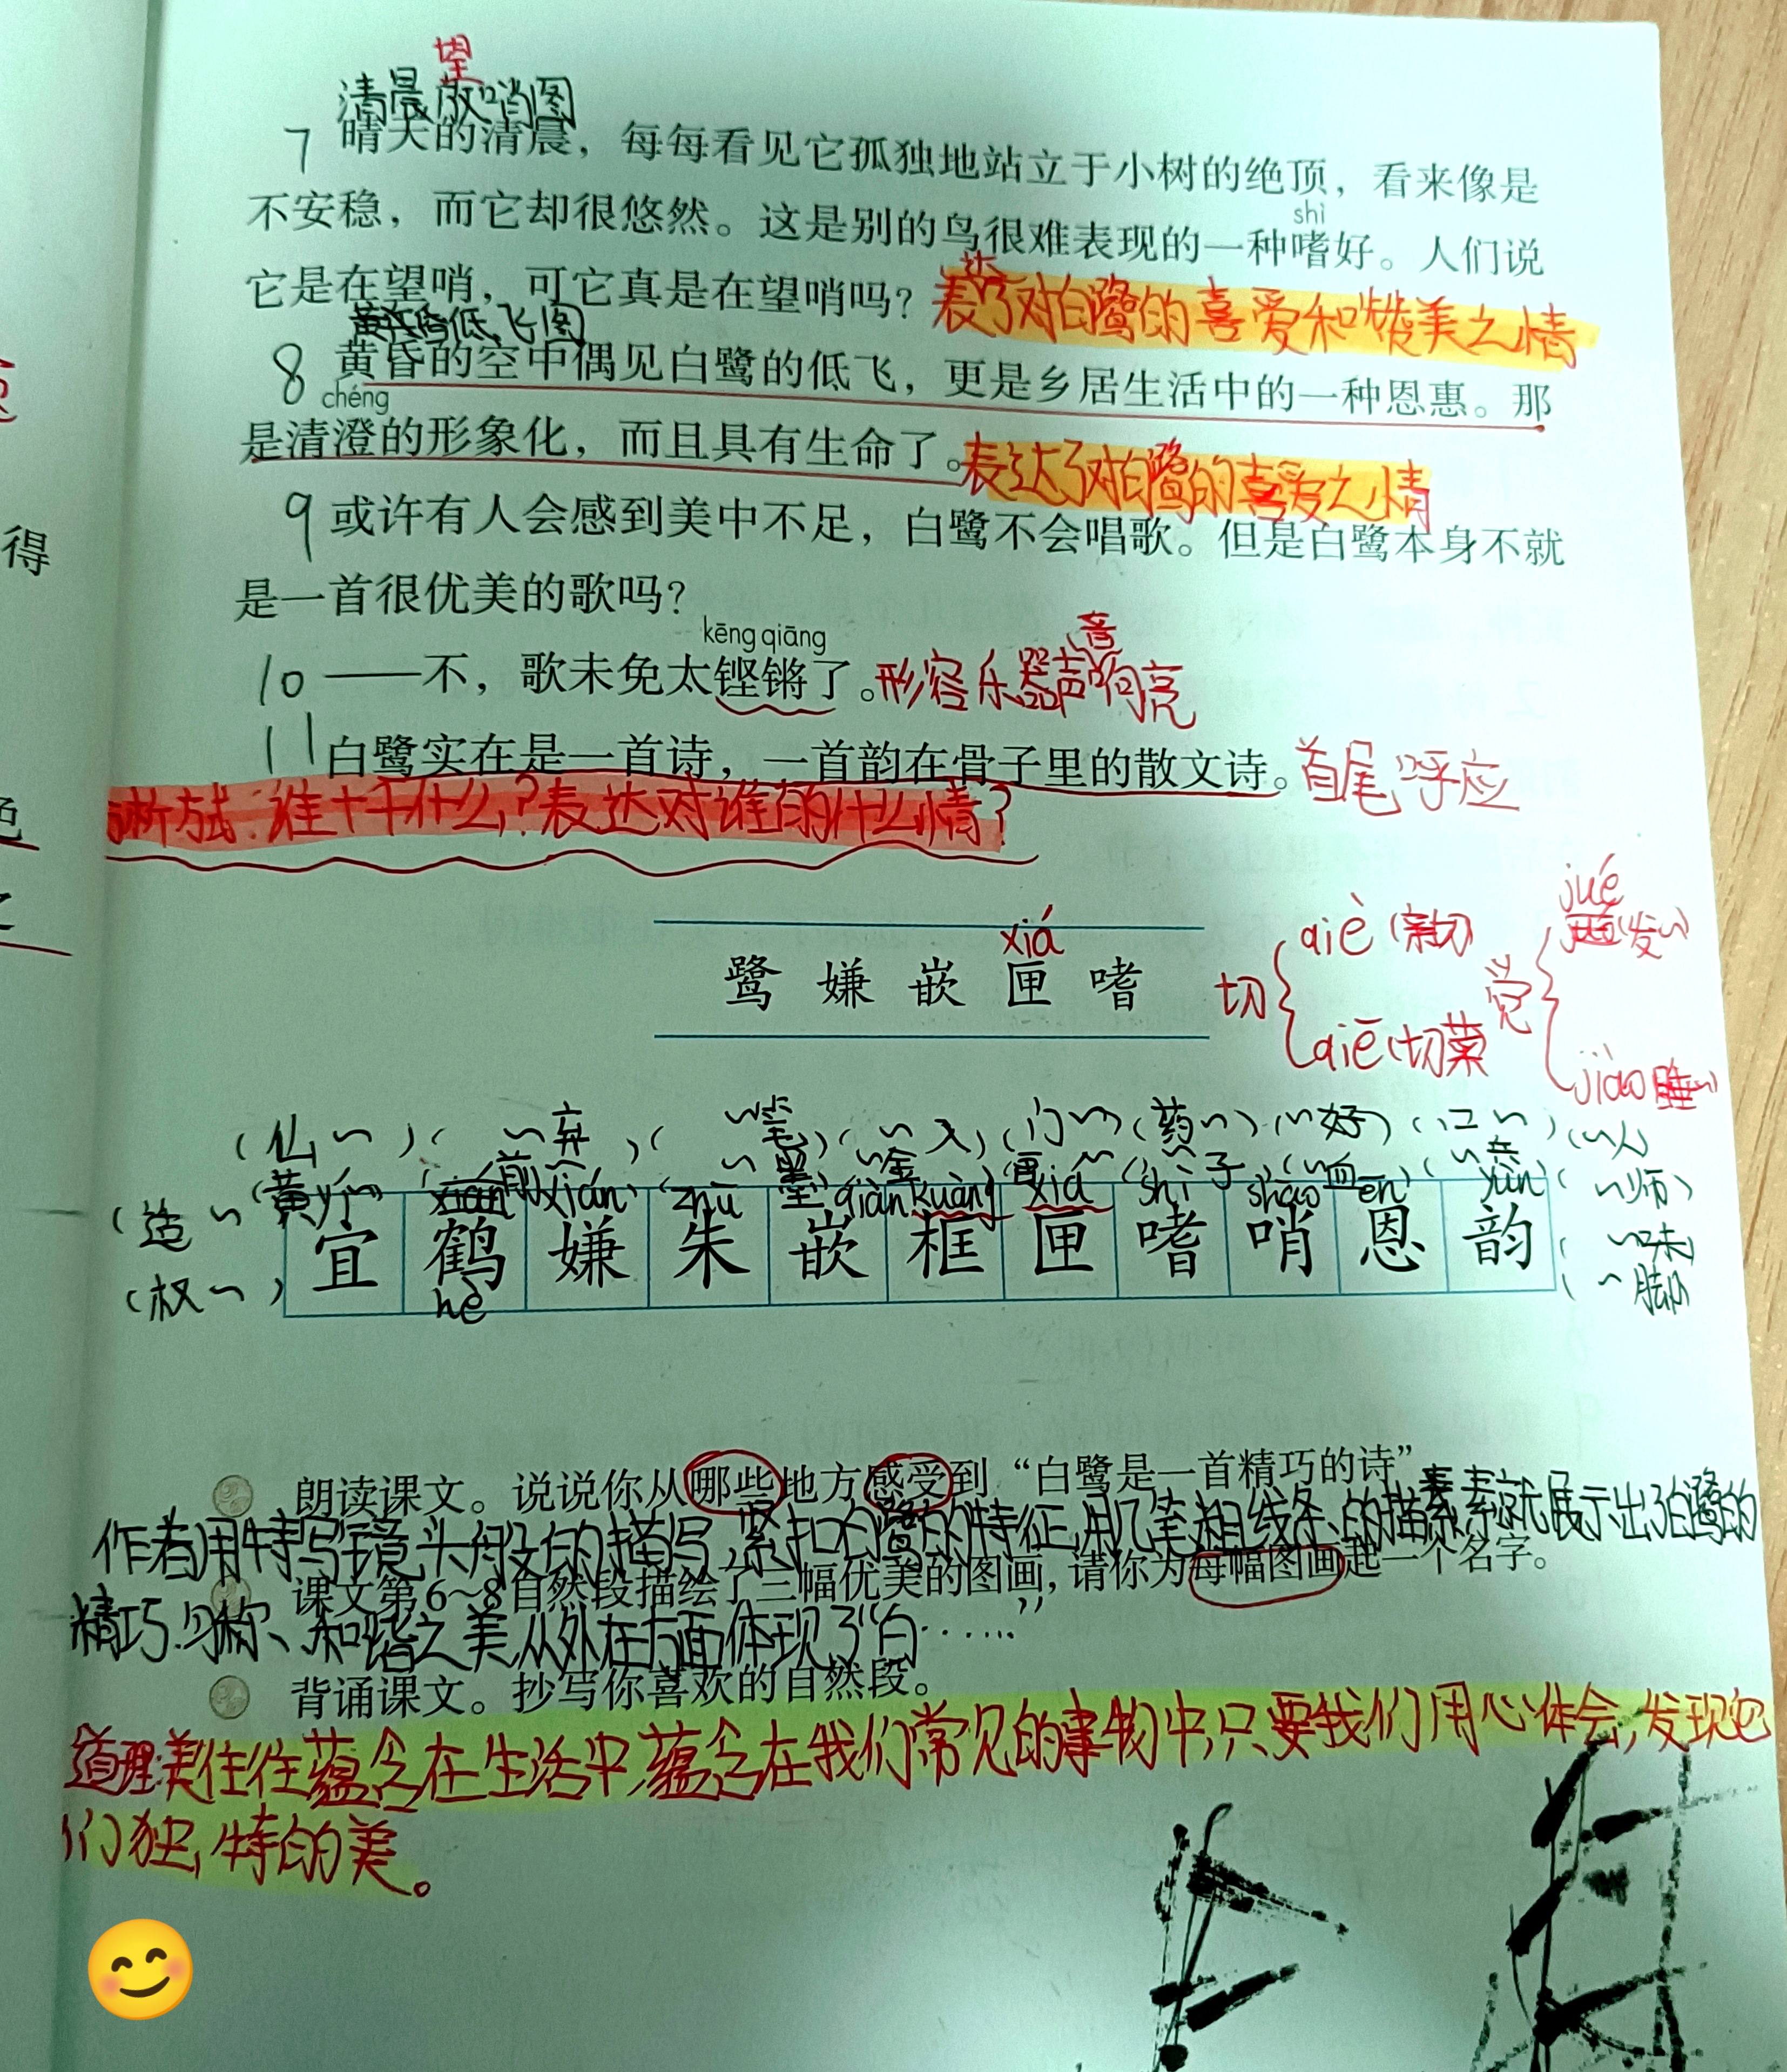 望
清晨放哨图
7 晴天的清晨，每每看见它孤独地站立于小树的绝顶，看来像是
不安稳，而它却很悠然。这是别的鸟很难表现的一种嗜好。人们说
shì
它是在望哨，可它真是在望哨吗？表达了对白鹭的喜爱和赞美之情
黄昏低飞图
8 黄昏的空中偶见白鹭的低飞，更是乡居生活中的一种恩惠。那
chéng
是清澄的形象化，而且具有生命了。表达了对白鹭的喜爱之情
9 或许有人会感到美中不足，白鹭不会唱歌。但是白鹭本身不就
是一首很优美的歌吗？
kēng qiāng
10 ——不，歌未免太铿锵了。形容乐器声音响亮
11 白鹭实在是一首诗，一首韵在骨子里的散文诗。首尾呼应
析方式：谁+干什么？表达对谁的什么情？
xiá
鹭 嫌 嵌 匣 嗜
切 qiè（亲切） qiē（切菜
觉 jué（发~） jiào 睡~
（仙~）（~弃）（~笔）（~入）（门~）（药~）（~好）（口~）（~人
（造~ （黄~） （前~ （~墨 （~金 （画~ （~子）（~血）（~兵 （~师）
yí xián zhū qiàn kuàng xiá shì shào ēn yùn
宜 鹤 嫌 朱 嵌 框 匣 嗜 哨 恩 韵
hè
（权~） （~味 （~脚
朗读课文。说说你从哪些地方感受到“白鹭是一首精巧的诗”
作者用特写镜头般的描写，紧扣白鹭的特征，用几笔粗线条的描素就展示出了白鹭的
课文第6～8自然段描绘了三幅优美的图画，请你为每幅图画起一个名字。
精巧、匀称、和谐之美，从外在方面体现了“白……”
背诵课文。抄写你喜欢的自然段。
道理：美往往蕴含在生活中，蕴含在我们常见的事物中，只要我们用心体会，发现它
们独特的美。